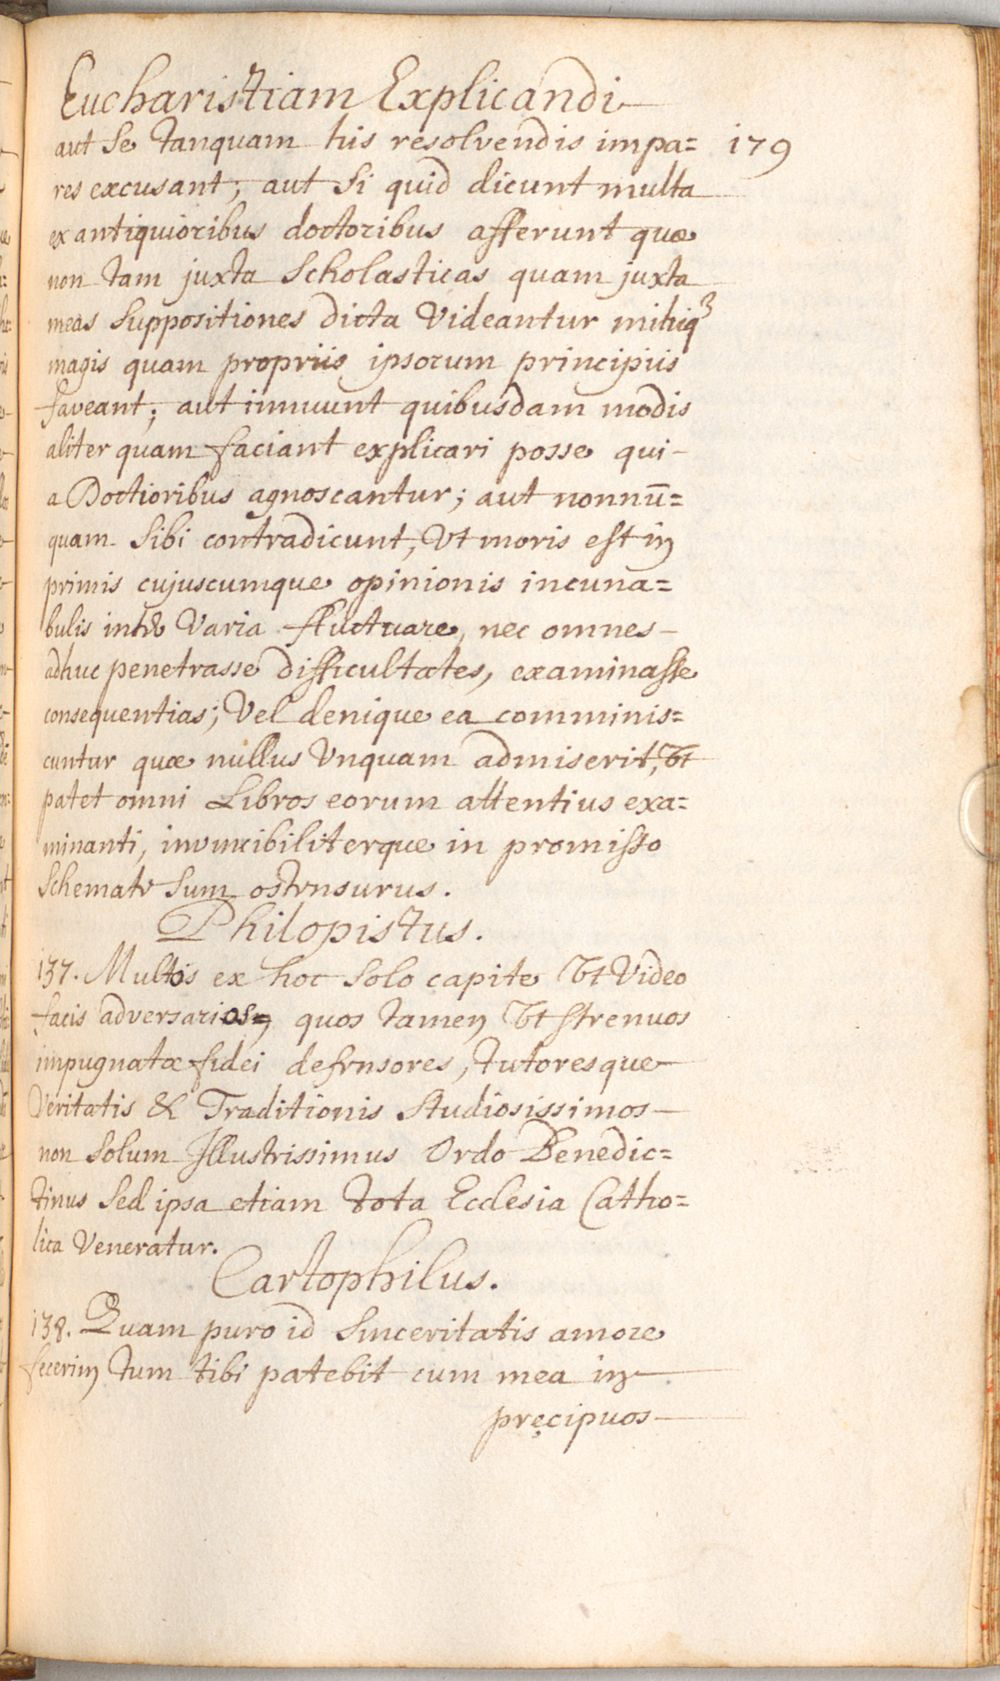 Eucharistiam Explicandi
aut se tanquam his resolvendis impa= 179
res excusant; aut si quid dicunt multa
ex antiquioribus doctoribus afferunt quæ
non tam juxta Scholasticas quam juxta
meas suppositiones dicta Videantur mihiq3
magis quam propriis ipsorum principiis
faveant; aut innuunt quibusdam modis
aliter quam faciant explicari posse qui
a Doctioribus agnoscantur; aut nonnū=
quam sibi contradicunt, Ut moris est in
primis cujuscumque opinionis incuna=
bulis inter Varia fluctuare, nec omnes
adhuc penetrasse difficultates, examinasse
consequentias; Vel denique ea comminis=
cuntur quæ nullus Unquam admiserit, Ut
patet omni Libros eorum attentius exa=
minanti, invincibiliterque in promisso
Schemate sum ostensurus.
Philopistus.
137. Multos ex hoc solo capite Ut Video
facis adversarios, quos tamen Ut strenuos
impugnatæ fidei defensores, tutoresque
Veritatis & Traditionis studiosissimos
non solum Illustrissimus Ordo Benedic=
tinus sed ipsa etiam tota Ecclesia Catho=
lica Veneratur.
Cartophilus.
138. Quam puro id sinceritatis amore
fecerim tum tibi patebit cum mea in
pręcipuos